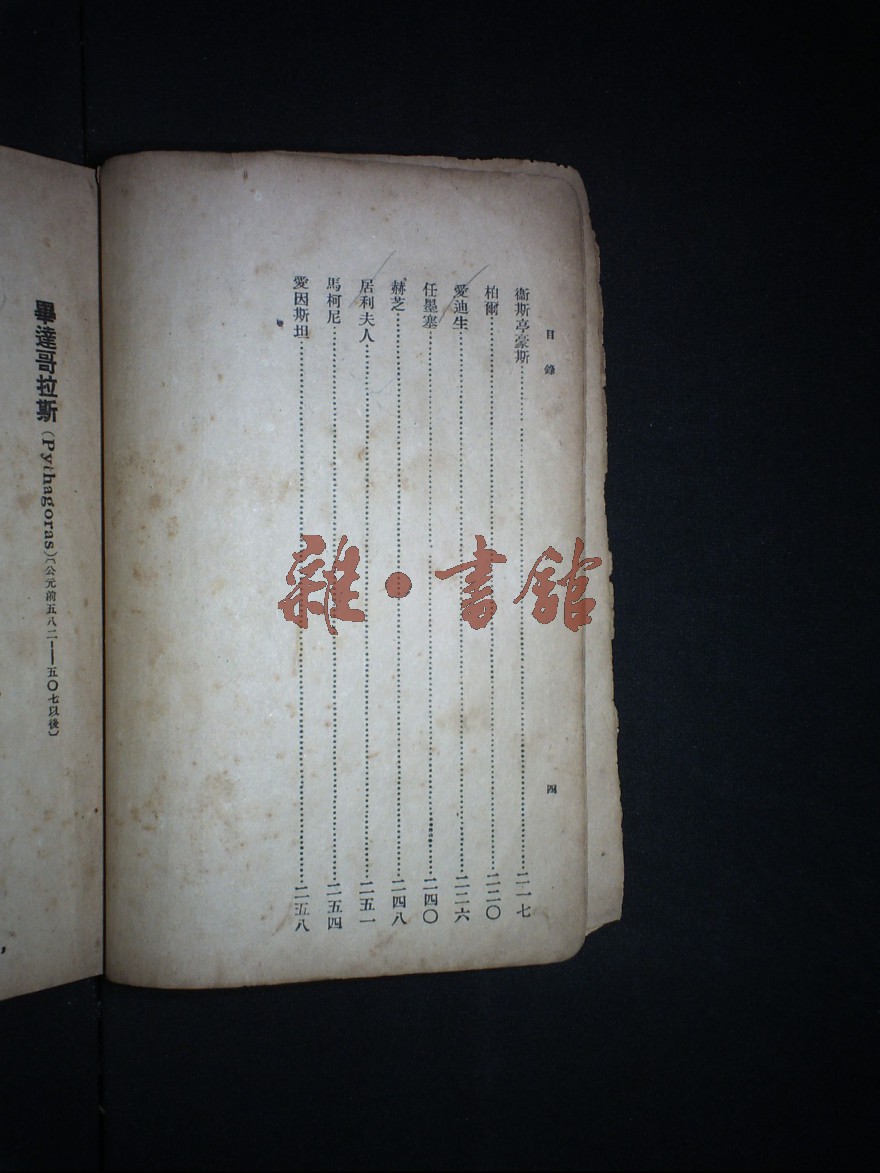 目錄
四
衞斯亭豪斯……二一七
柏爾……二二〇
愛迪生……二二六
任墨塞……二四〇
赫芝……二四八
居利夫人……二五一
馬柯尼……二五四
愛因斯坦……二五八
畢達哥拉斯(Pythagoras)〔公元前五八二——五〇七以後〕
雜·書館